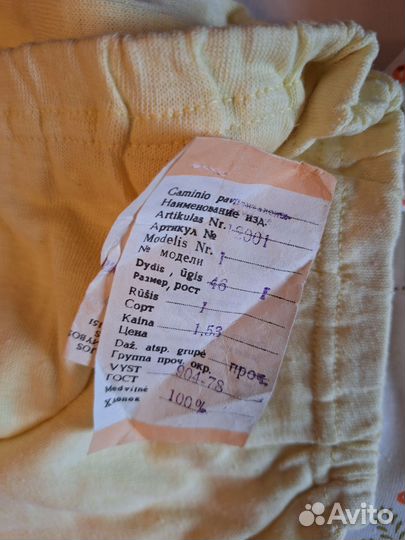 Gaminio pav.
Наименование изд.
Artikulas Nr. 2001
Артикул №
Modelis Nr. 1
№ модели
Dydis, ūgis 46 I
Размер, рост
Rūšis
Сорт 1
Kaina
Цена 1,53
Daž. atsp. grupė
Группа проч. окр. проч.
VYST
ГОСТ 904-78
Medvilnė
Хлопок 100%
Avito